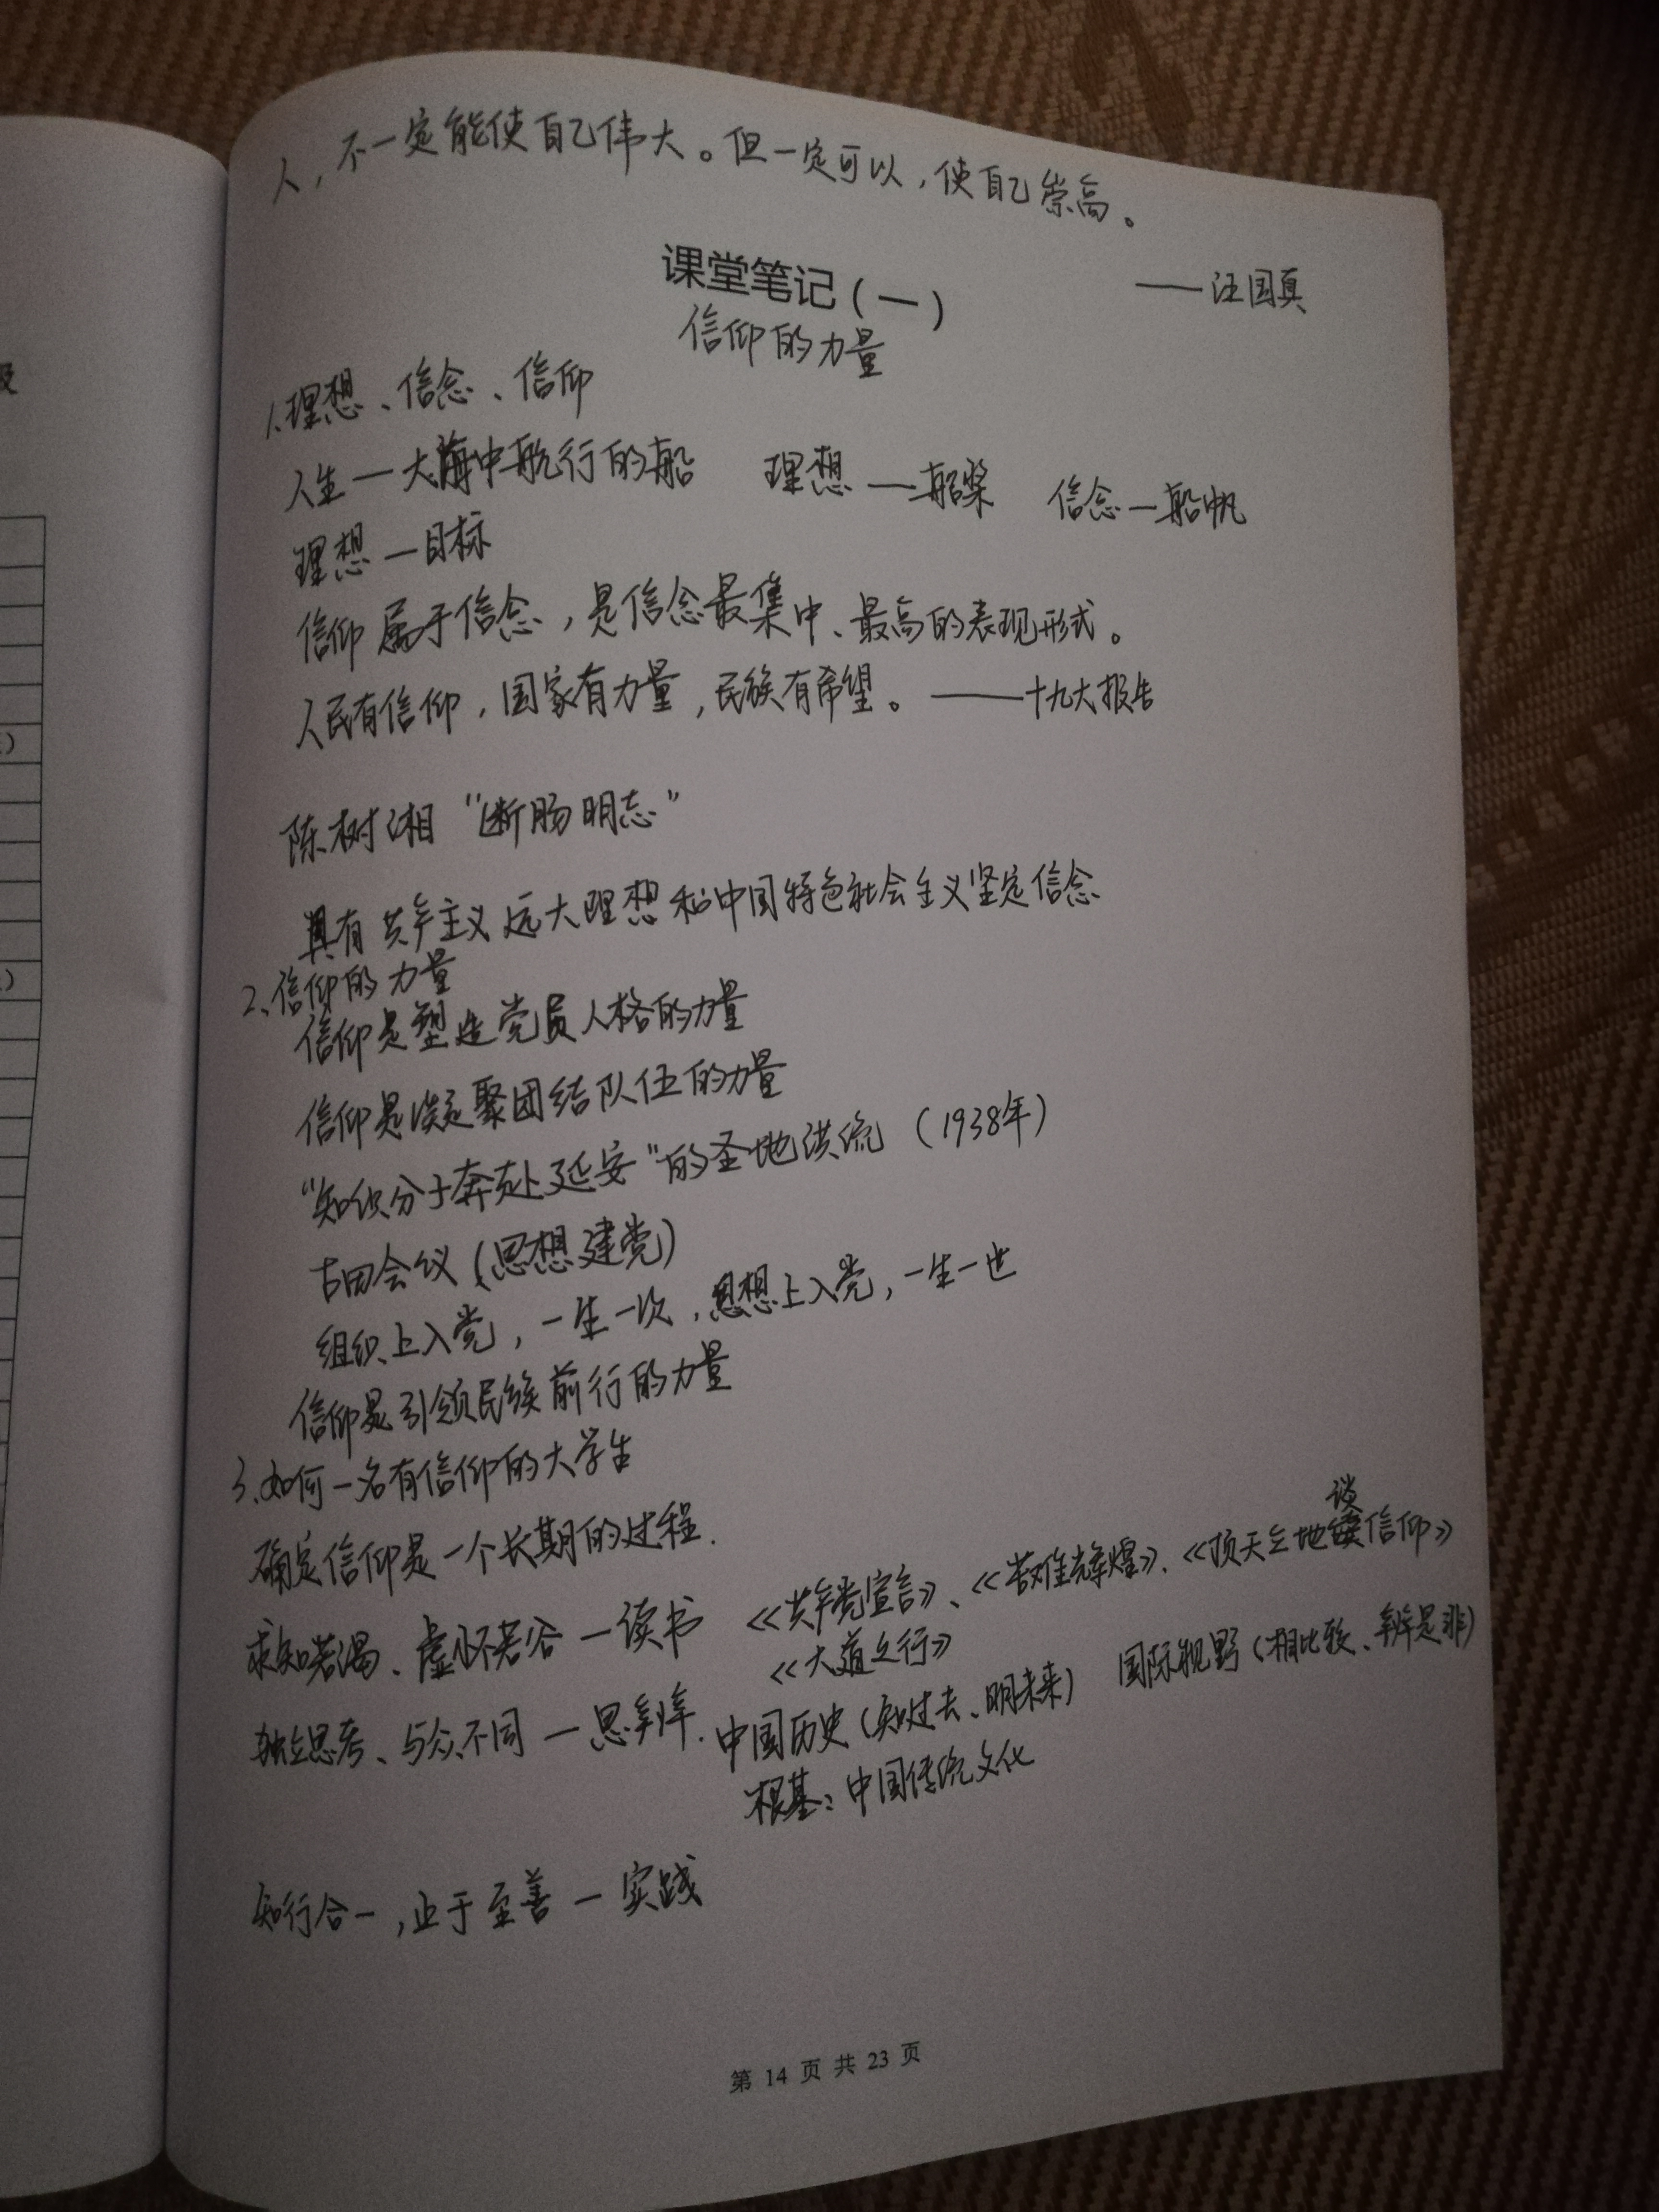 人，不一定能使自己伟大。但一定可以，使自己崇高。
课堂笔记（一）
——汪国真
信仰的力量
1、理想、信念、信仰
人生—大海中航行的船 理想—船桨 信念—船帆
理想—目标
信仰属于信念，是信念最集中、最高的表现形式。
人民有信仰，国家有力量，民族有希望。——十九大报告
陈树湘“断肠明志”
具有共产主义远大理想和中国特色社会主义坚定信念
2、信仰的力量
信仰是塑造党员人格的力量
信仰是凝聚团结队伍的力量
“知识分子奔赴延安”的圣地洪流（1938年）
古田会议（思想建党）
组织上入党，一生一次，思想上入党，一生一世
信仰是引领民族前行的力量
3、如何一名有信仰的大学生
确定信仰是一个长期的过程.
求知若渴、虚怀若谷—读书 《共产党宣言》、《苦难辉煌》、《顶天立地谈信仰》
《大道之行》
独立思考、与众不同—思辨. 中国历史（知过去、明未来） 国际视野（相比较、辨是非）
根基：中国传统文化
知行合一，止于至善—实践
第 14 页 共 23 页